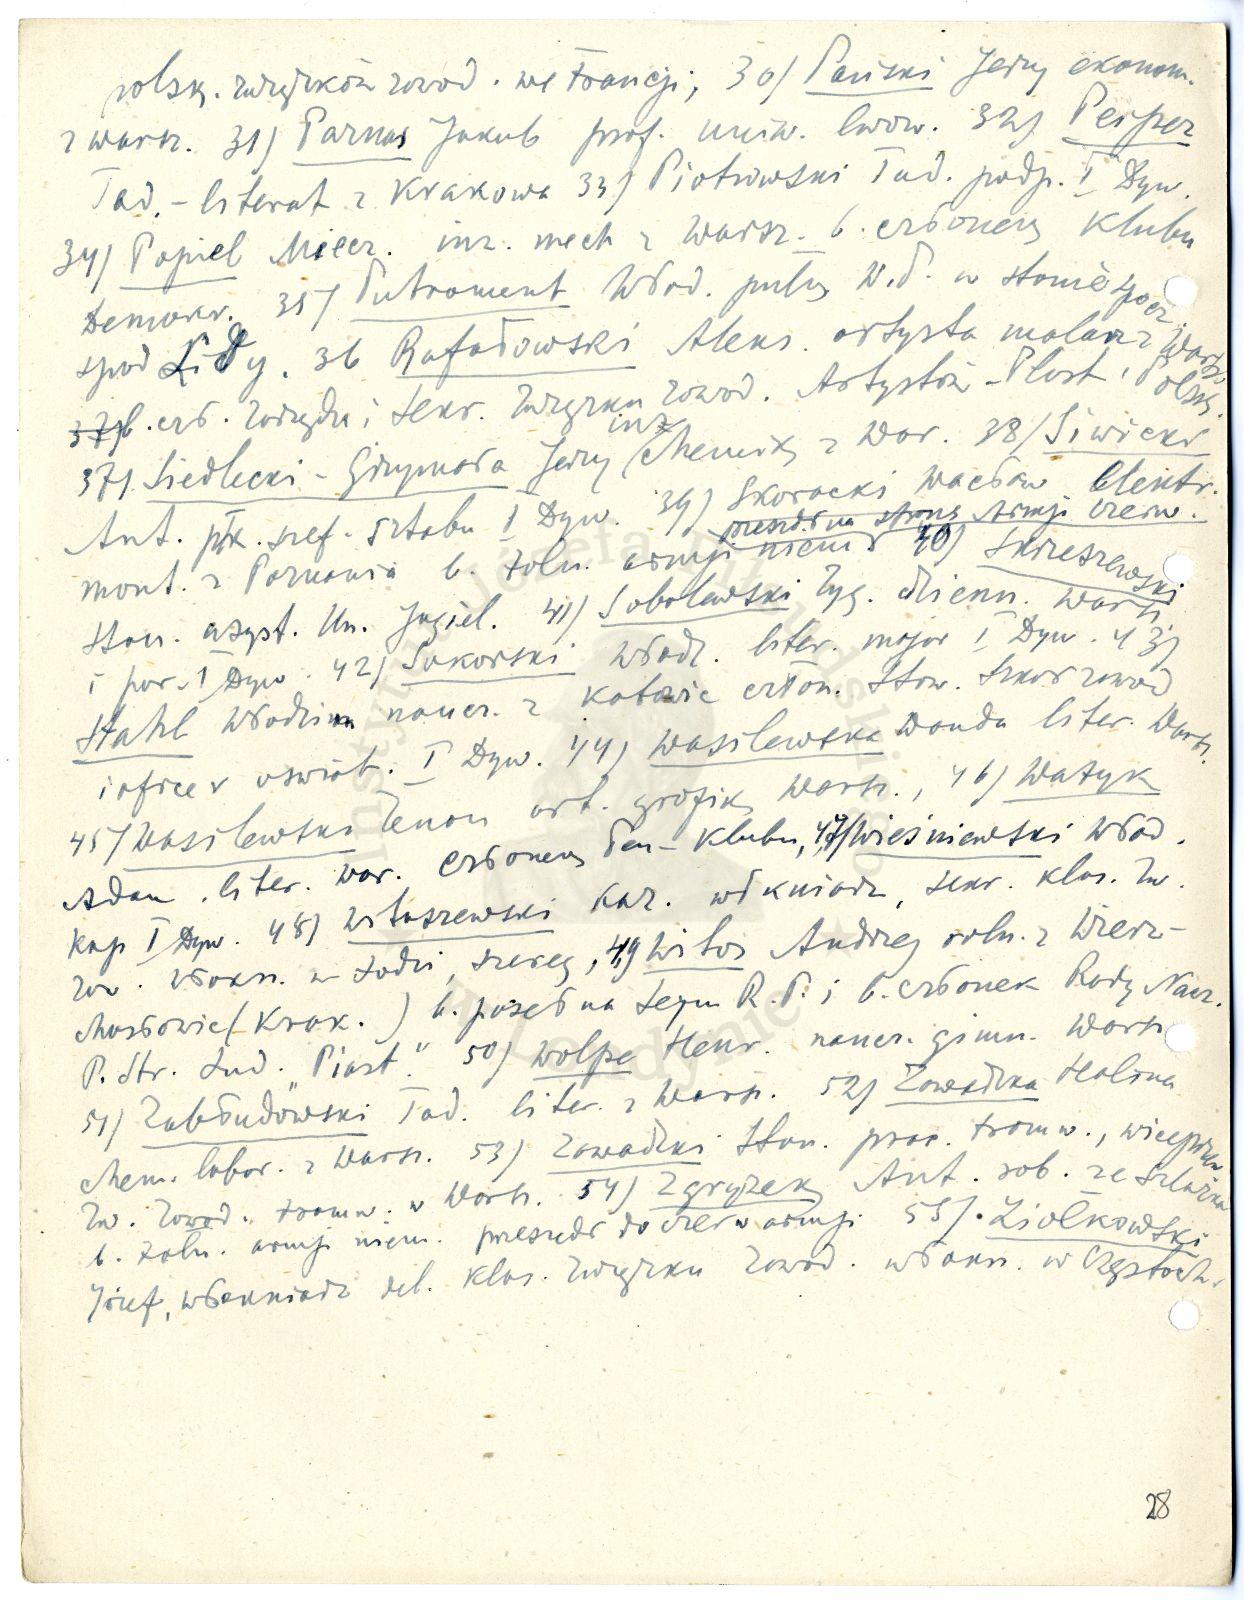 polsk. związków zawod. we Francji; 30) Pański Jerzy ekonom.
z Warsz. 31) Parnas Jakub prof. uniw. lwow. 32) Peiper
Tad. – literat z Krakowa 33) Piotrowski Tad. podp. I Dyw.
34) Popiel Miecz. inż. mech z Warsz. b. członek Klubu
Demokr. 35) Putrament Włod. pułk W.P. w stanie spocz.
spod Lidy. 36 Rafałowski Aleks. artysta malarz z Warsz.
b. czł. Zarządu i sekr. Związku zawod. Artystów – Plast. Polsk.
37). Siedlecki – Grzymała Jerzy inż Chemik z War. 38) Siwicki
Ant. płk. szef. sztabu I Dyw. 39) Skoracki Wacław elektr.
mont. z Poznania b. żołn. armji niem przeszedł na stronę Armji czerw. 40) Skrzeszewski
Stan. asyst. Un. Jagiel. 41) Sobolewski Zyg. dzienn. Warsz
i por. I Dyw. 42) Sokorski Włodz. liter. major I Dyw. 43)
Stahl Włodzim naucz. z Katowic człon. Stow. szkół zawod
i oficer oświat. I Dyw. 44) Wasilewska Wanda liter. Warsz.
45) Wasilewski Zenon art. grafik Warsz., 46) Ważyk
Adam. liter. War. członek Pen – Klubu, 47) Wiśniewski Włod.
kap I Dyw. 48) Witaszewski Kaz. włókniarz, sekr. klas. Zw.
Zaw. Włókn. w Łodzi, szereg, 49) Witos Andrzej roln. z Wierz-
chosławic (Krak.) b. poseł na Sejm R.P. i b. członek Rady Nacz.
P. Str. Lud. „Piast." 50) Wolpe Henr. naucz. gimn. Warsz
51) Zabłudowski Tad. liter. z Warsz. 52) Zawadzka Halina
chem. labor. z Warsz. 53) Zawadzki Stan. prac. tramw., wiceprzew
Zw. Zawod. tramw. w Warsz. 54) Zgrzyzek Ant. rob. ze Szlązka
b. żołn. armji niem. przeszedł do czerw armji 55). Ziółkowski
Józef, włókniarz del. klas. Związku Zawod. włókn. w Częstoch.
Instytut Józefa Piłsudskiego w Londynie
28